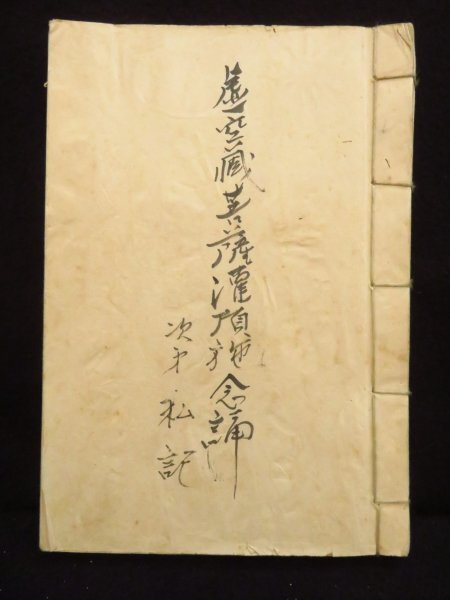 虚空蔵菩薩灌頂詑念誦
次第私記